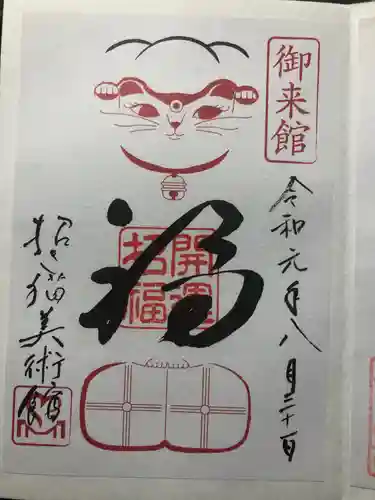 御来館
令和元年八月二十一日
福
開運
招福
招き猫美術館